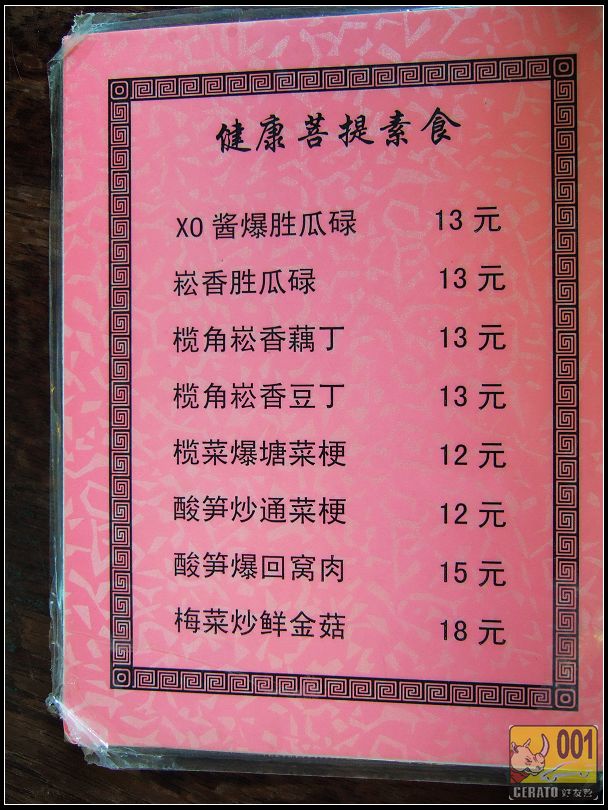 健康菩提素食
XO酱爆胜瓜碌 13元
崧香胜瓜碌 13元
榄角崧香藕丁 13元
榄角崧香豆丁 13元
榄菜爆塘菜梗 12元
酸笋炒通菜梗 12元
酸笋爆回窝肉 15元
梅菜炒鲜金菇 18元
001
CERATO